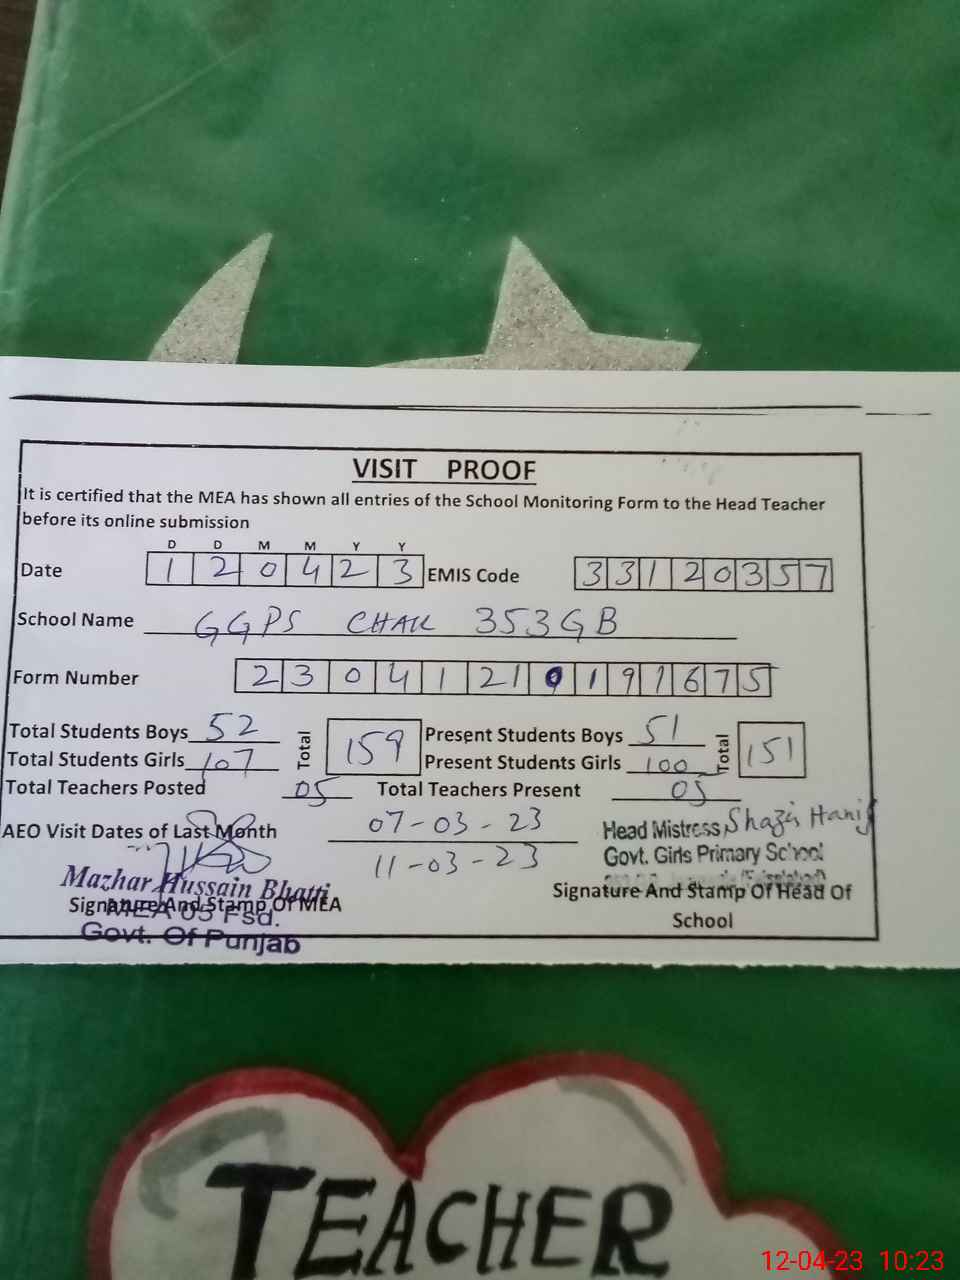 VISIT PROOF
It is certified that the MEA has shown all entries of the School Monitoring Form to the Head Teacher
before its online submission
D D M M Y Y
Date 1 2 0 4 2 3 EMIS Code 3 3 1 2 0 3 5 7
School Name GGPS CHAK 353GB
Form Number 2 3 0 4 1 2 1 0 1 9 1 6 7 5
Total Students Boys 52 Total 159 Present Students Boys 51 Total 151
Total Students Girls 107 Present Students Girls 100
Total Teachers Posted 05 Total Teachers Present 05
AEO Visit Dates of Last Month 07-03-23
11-03-23
Head Mistress Shazia Hanif
Govt. Girls Primary School
(Faisalabad)
Mazhar Hussain Bhatti
Signature And Stamp Of MEA
MEA 05 Fsd.
Govt. Of Punjab
Signature And Stamp Of Head Of
School
TEACHER
12-04-23 10:23